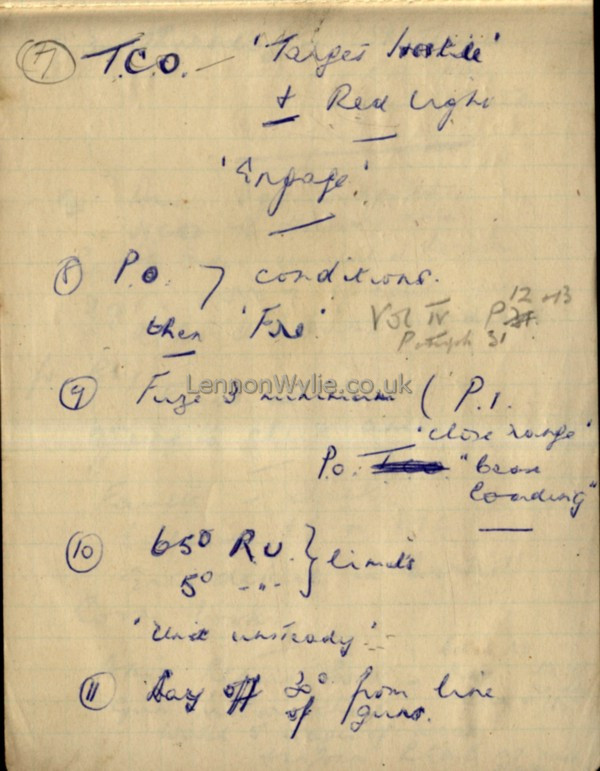 (7) T.C.O. — 'Target hostile'
+ Red light
'Engage'.
(8) P.O. } conditions.
then 'Fire'
Vol IV - P 12 + 13
31
(9) Fuze 3 minimum ( P.1.
'close range'
P.O. "
loading"
LennonWylie.co.uk
(10) 65° R.U. } limits
5° -"-
'Unit unsteady' -
(11) Lay off 30° from line
of guns.